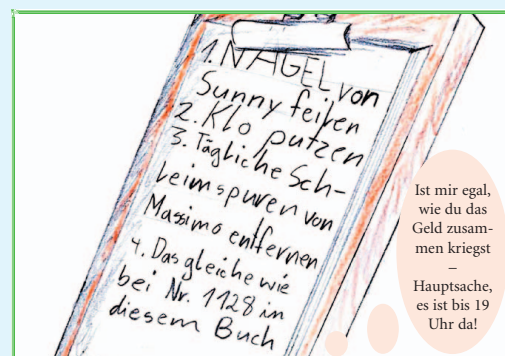 1. NÄGEL von
Sunny feilen
2. Klo putzen
3. Tägliche Sch-
leimspuren von
Massimo entfernen
4. Das gleiche wie
bei Nr. 1128 in
diesem Buch
Ist mir egal,
wie du das
Geld zusam-
men kriegst
–
Hauptsache,
es ist bis 19
Uhr da!